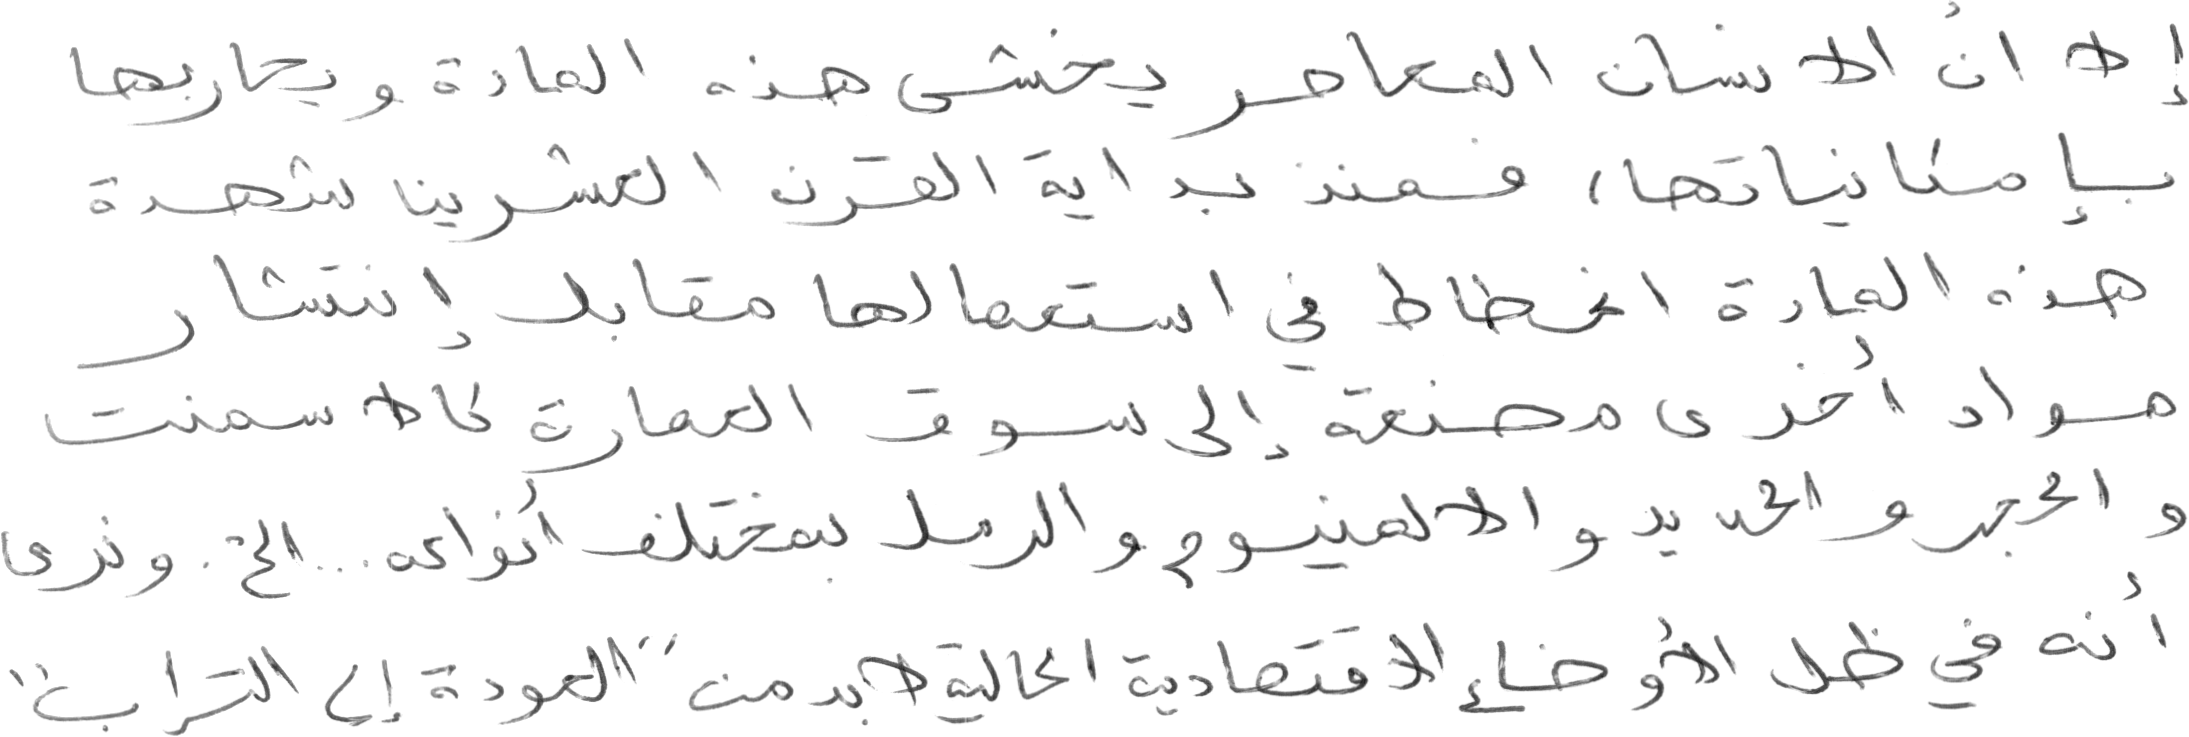 إلا أن الانسان المعاصر يخشى هذه المادة ويحاربها
بإمكانياتها، فمنذ بداية القرن العشرينا شهدة
هذه المادة انحطاط في استعمالها مقابل إنتشار
مواد أخرى مصنعة إلى سوق العمارة كالاسمنت
والحجر والحديد والالمنيوم والرمل بمختلف أنواعه...الخ. ونرى
أنه في ظل الأوضاع الاقتصادية الحالية لابد من "العودة إلى التراب"